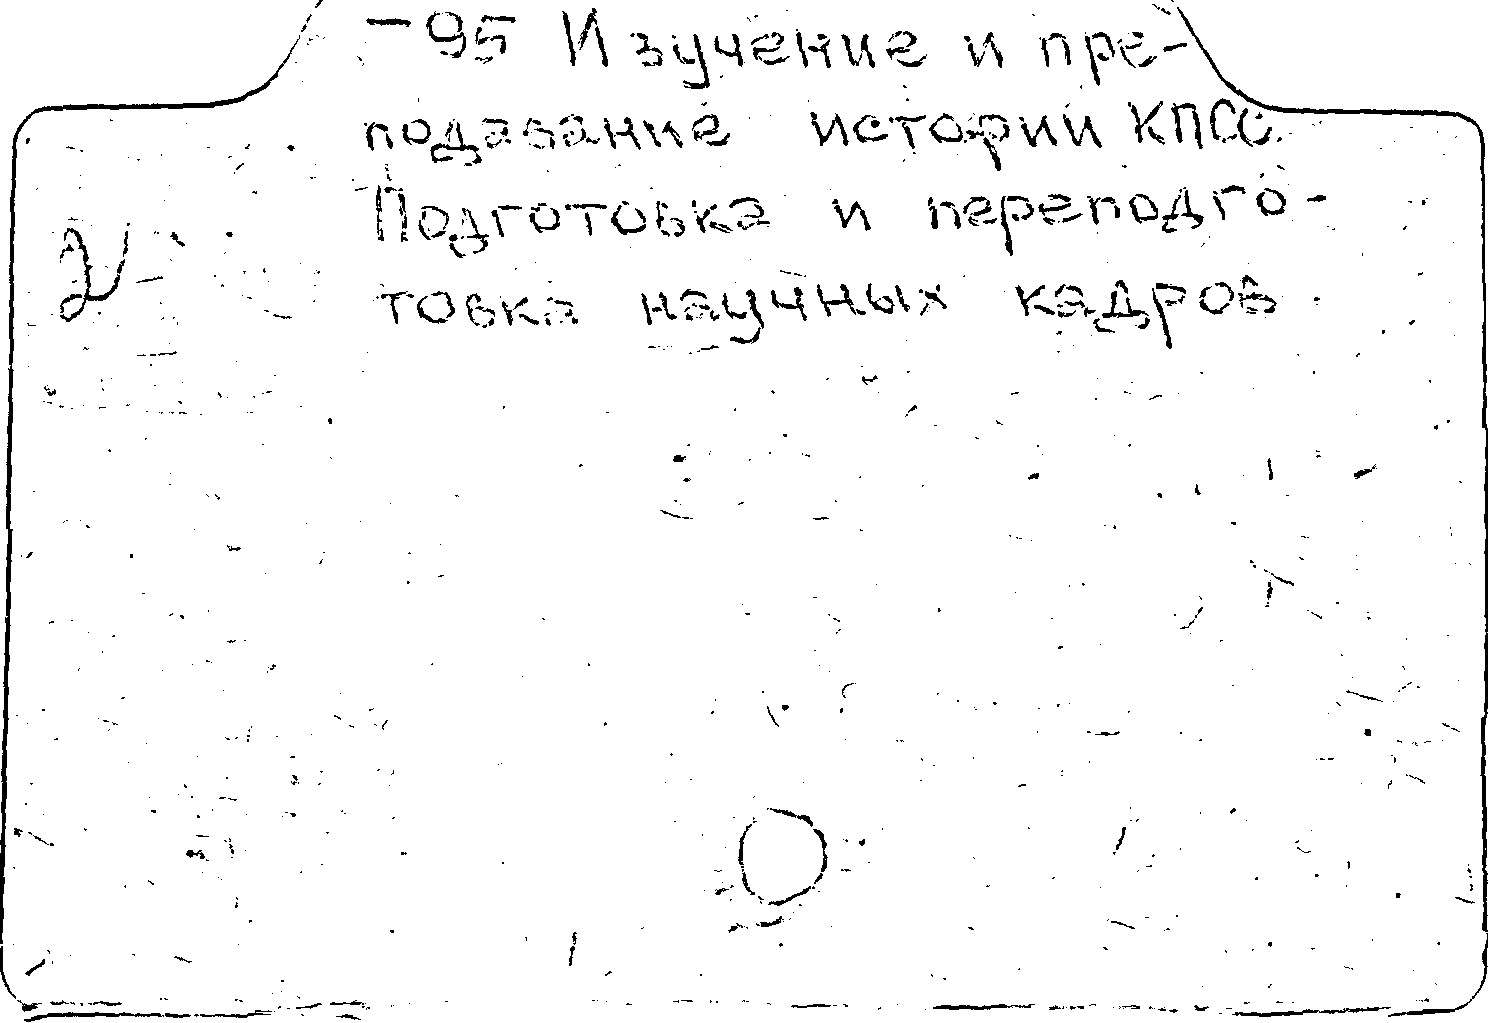 -95 Изучение и пре-
подавание истории КПСС.
Подготовка и переподго-
товка научных кадров.